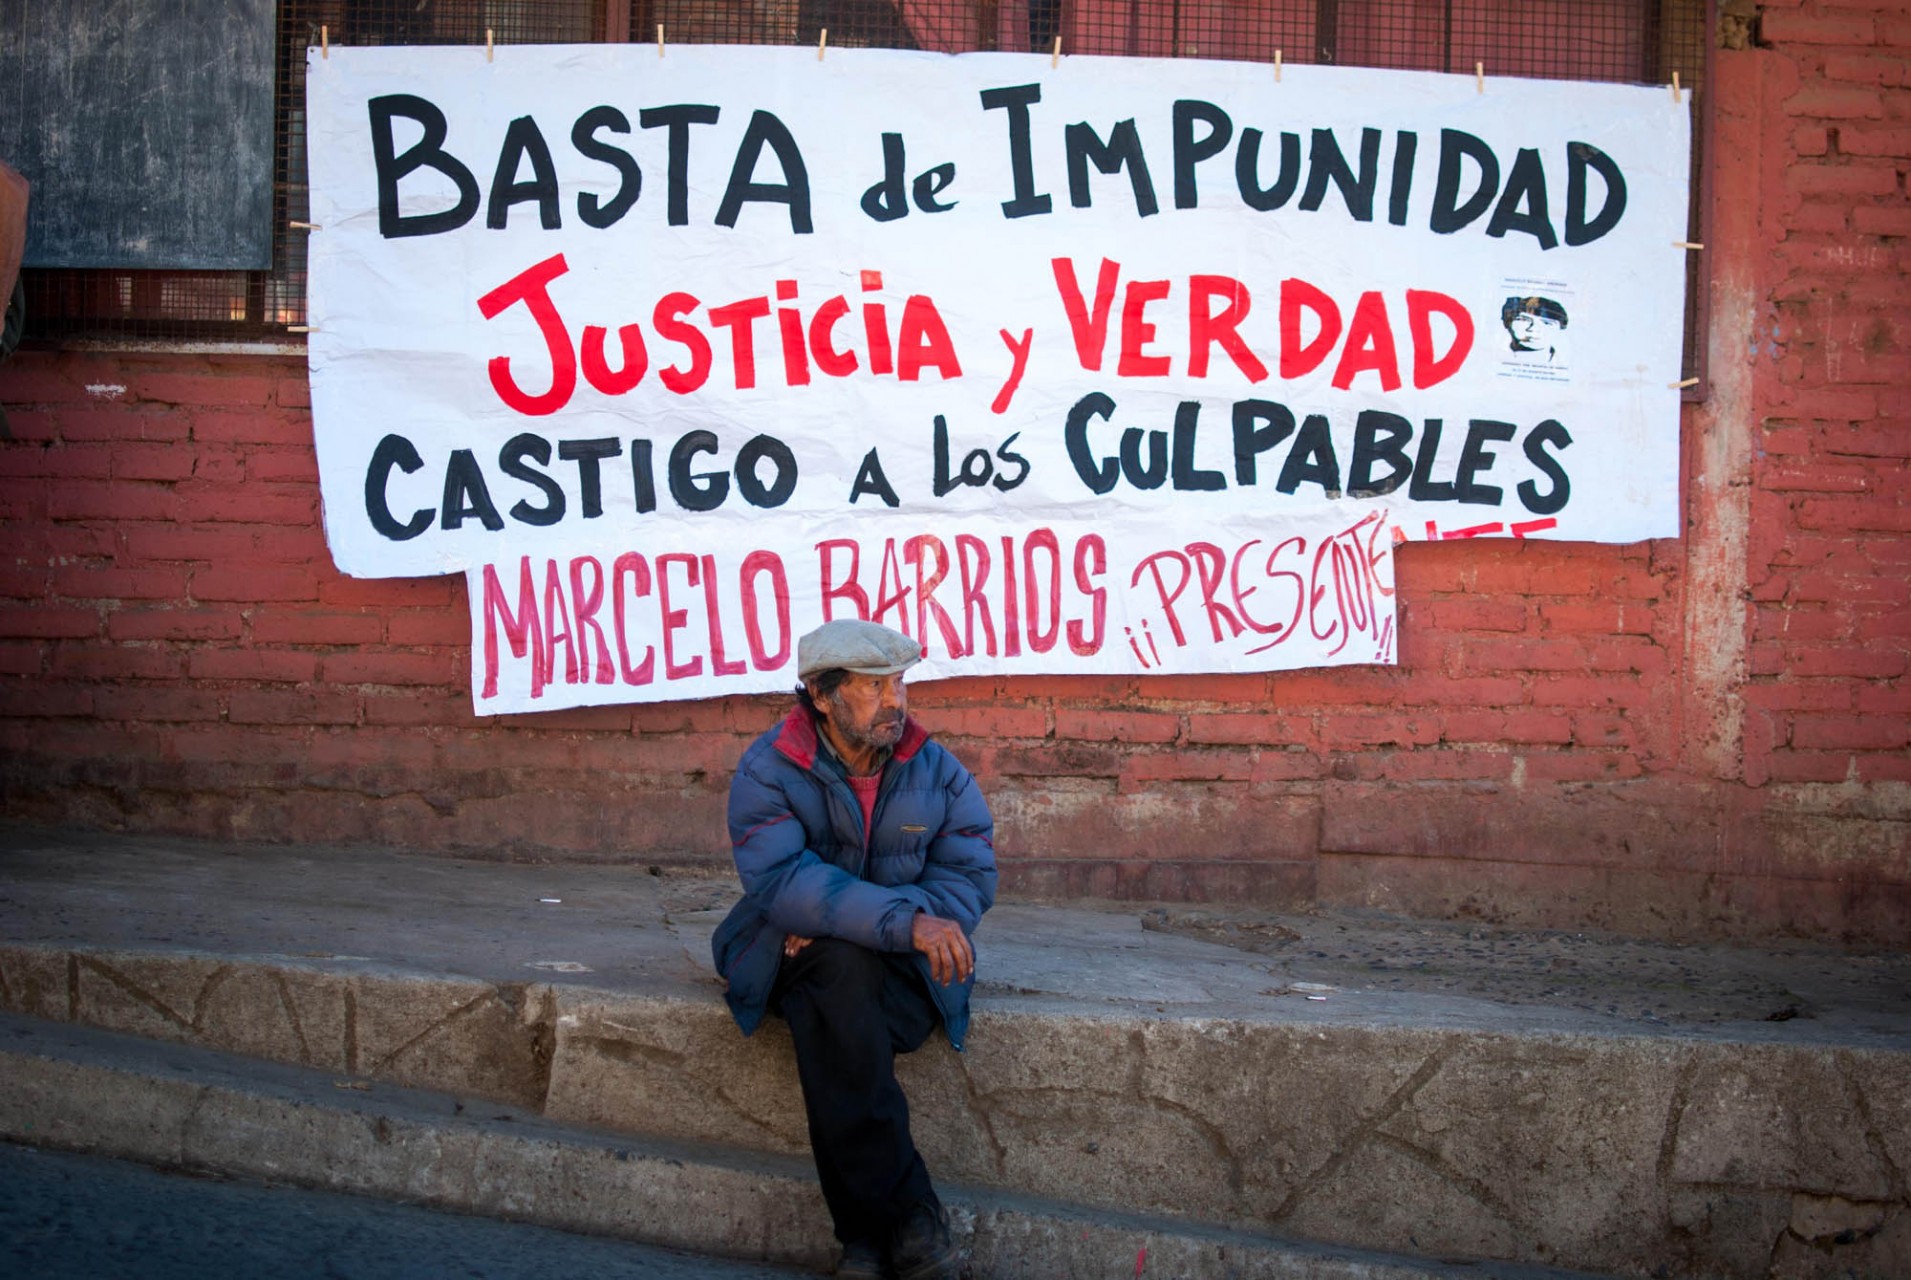 BASTA de IMPUNIDAD
JUSTiCiA y VERDAD
CASTIGO A LOS CULPABLES
MARCELO BARRIOS ¡¡PRESENTE!!